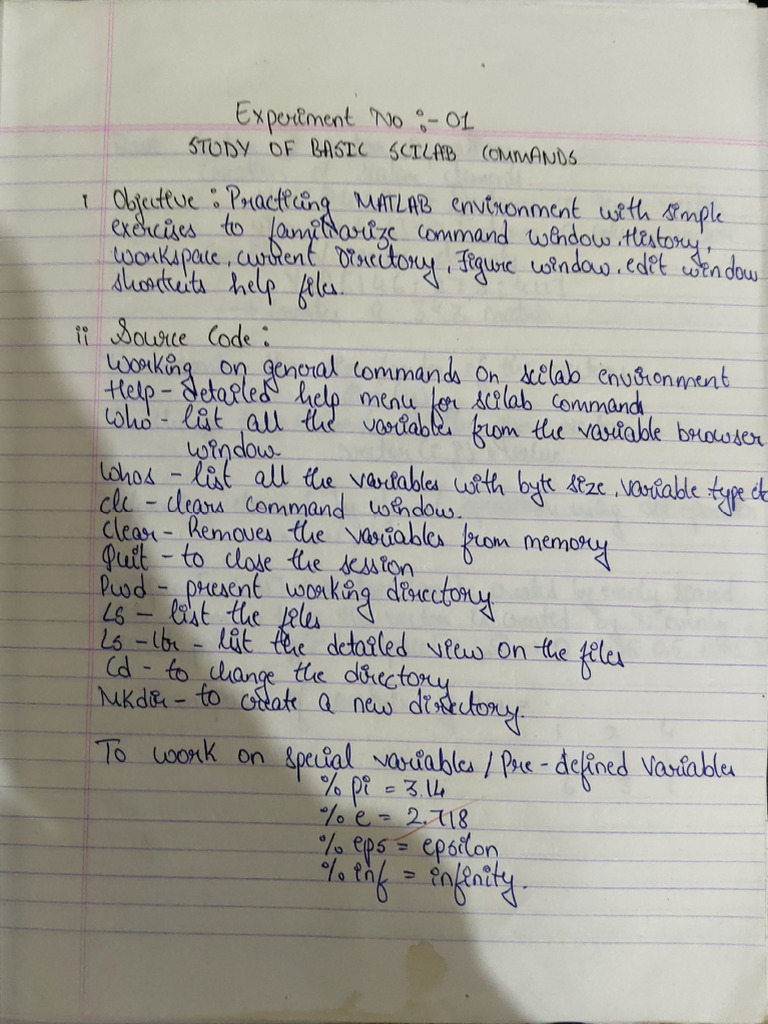 Experiment No :- 01
STUDY OF BASIC SCILAB COMMANDS
i Objective : Practicing MATLAB environment with simple
exercises to familiarize command window, History,
workspace, current Directory, Figure window, edit window
shortcuts help files.
ii Source Code :
Working on general commands on scilab environment
Help - detailed help menu for scilab command
Who - list all the variables from the variable browser
window
Whos - list all the variables with byte size, variable type etc
clc - clears command window.
Clear - Removes the variables from memory
Quit - to close the session
Pwd - present working directory
LS - list the files
LS - ltr - list the detailed view on the files
Cd - to change the directory
MKdir - to create a new directory.
To work on special variables / Pre-defined Variables
% pi = 3.14
% e = 2.718
% eps = epsilon
% inf = infinity.